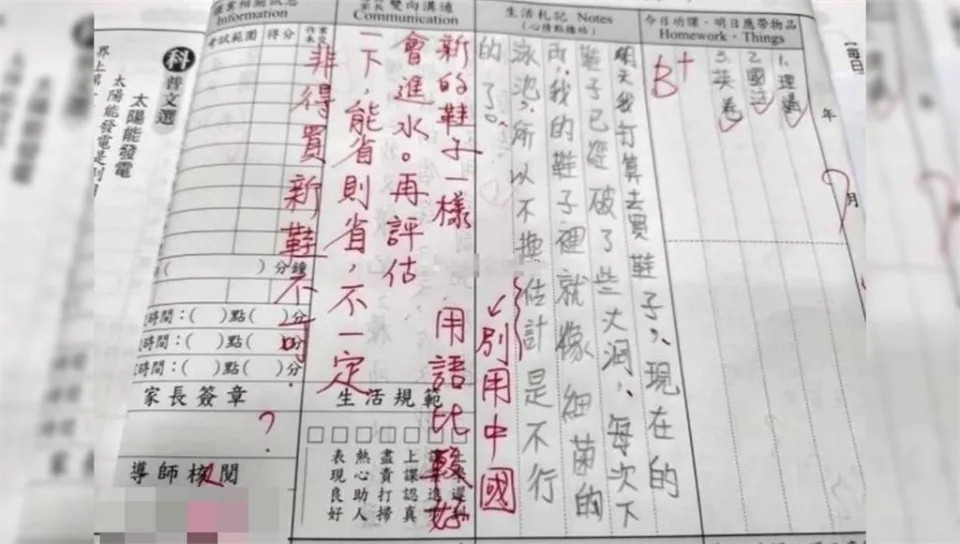 【每日
年
月
今日功課・明日應帶物品
Homework・Things
3.英卷
B+
生活札記 Notes
(心情點播站)
明天我打算去買鞋子,現在的
鞋子已經破了些大洞,每次下
雨,我的鞋子裡就像細菌的
泳池,所以不換估計是不行
的了。
別用中國
用語比較好
雙向溝通
Communication
新的鞋子一樣
會進水。再評估
一下,能省則省,不一定
非得買新鞋不可.
生活規範
上課認真
盡責打掃
熱心助人
表現良好
Information
考試範圍
得分
( )分鐘
時間:( )點( )分
時間:( )點( )分
時間:( )點( )分
家長簽章
?
導師核閱
科普文選
太陽能發電
太陽能發電是利用